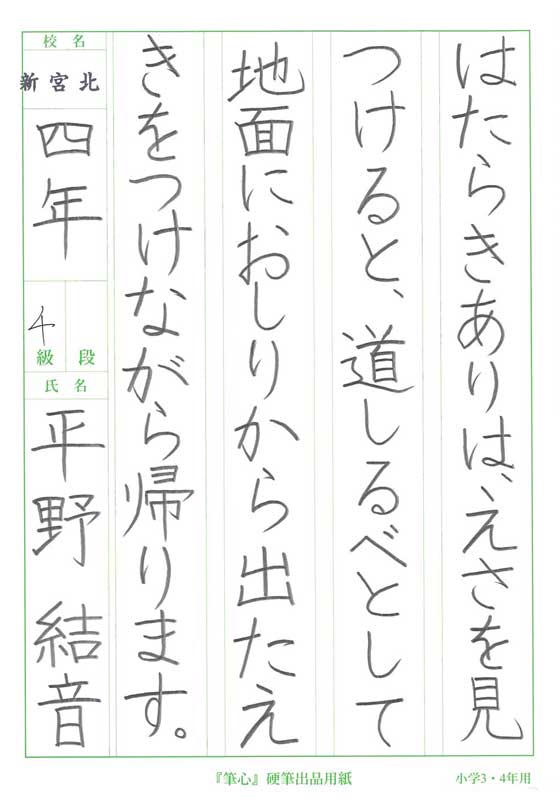 はたらきありは、えさを見
つけると、道しるべとして
地面におしりから出たえ
きをつけながら帰ります。
校名
新宮北
四年
段
4級
氏名
平野結音
『筆心』硬筆出品用紙
小学3・4年用